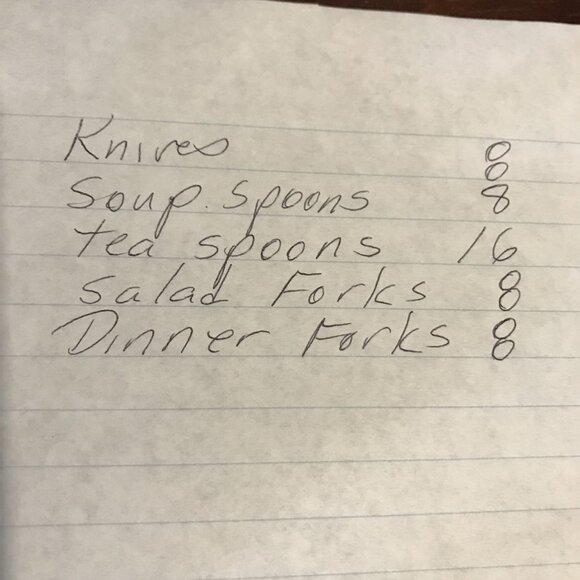 Knives 8
Soup. Spoons 8
tea spoons 16
Salad Forks 8
Dinner Forks 8